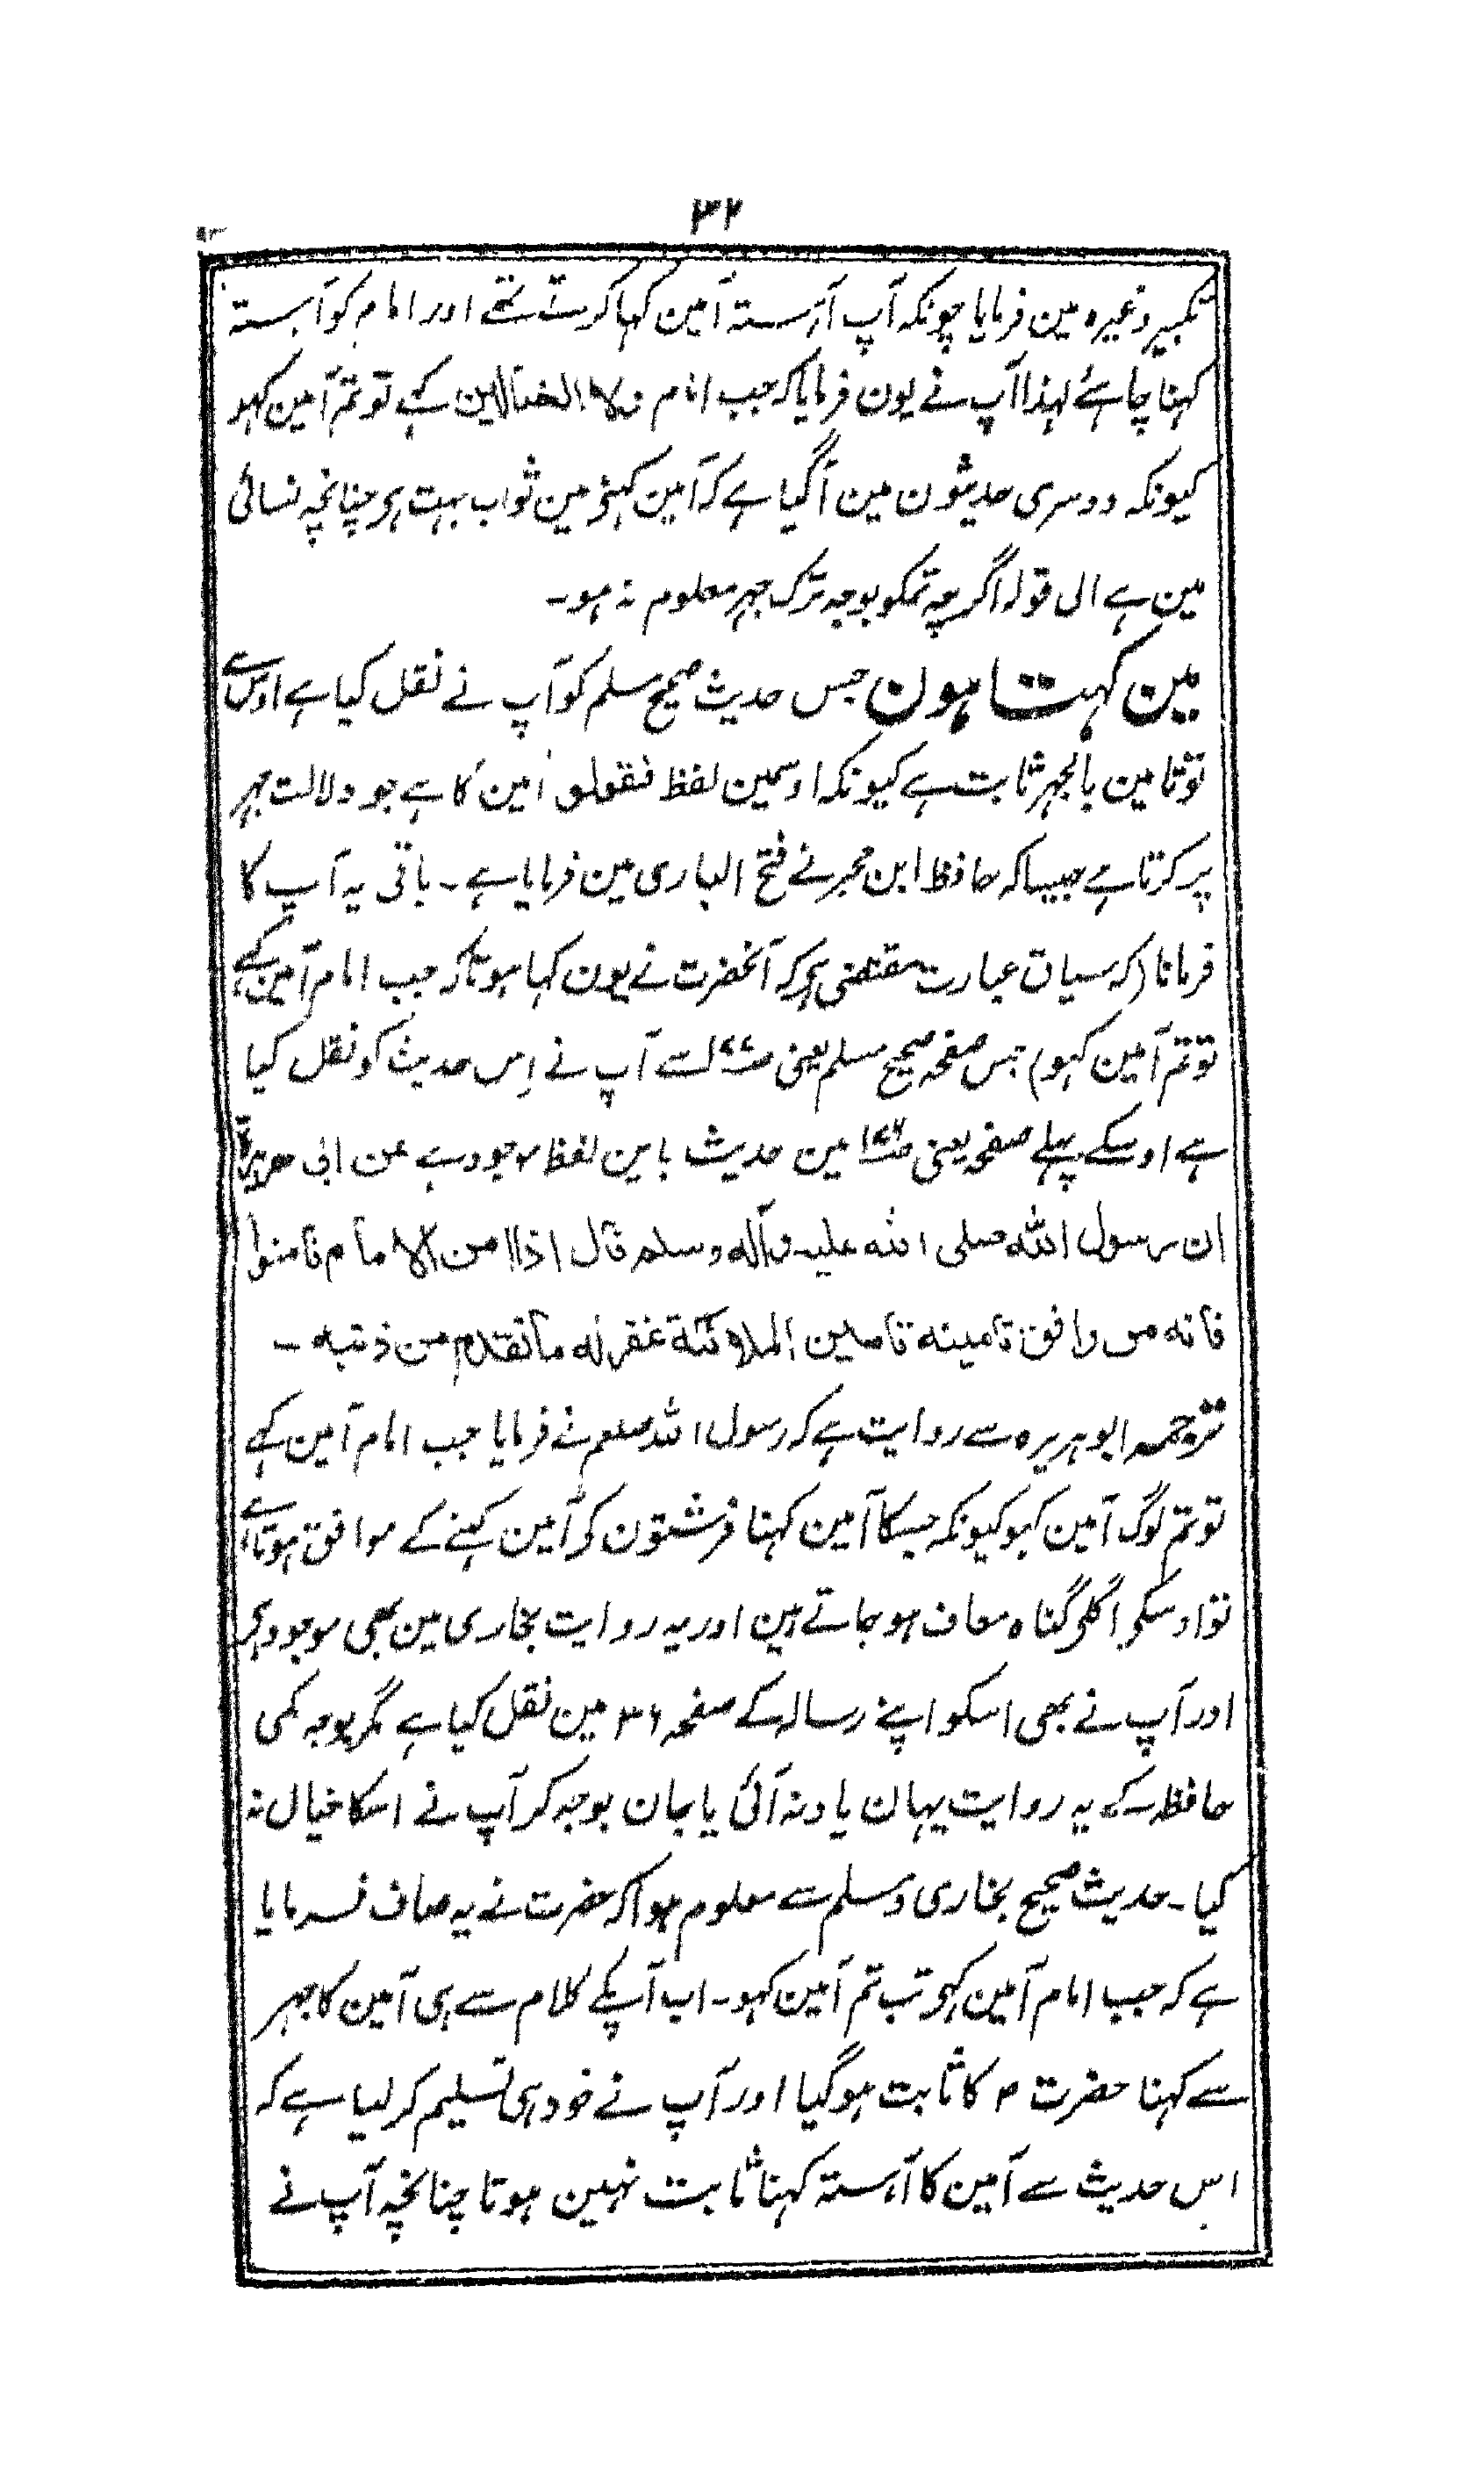 ۳۲
تکبیر وغیرہ مین فرمایا چونکہ آپ آہستہ آمین کہا کرتے تھے اور امام کو آہستہ
کہنا چاہئے لہذا آپ نے یون فرمایا کہ جب امام ولا الضالین کہے تو تم آمین کہو
کیونکہ دوسری حدیثون مین آگیا ہے کہ آمین کہنے مین ثواب بہت ہی چنانچہ نسائی
مین ہے الی قولہ اگرچہ تمکو بوجہ ترک جہر معلوم نہ ہو۔
مین کہتا ہون جس حدیث صحیح مسلم کو آپ نے نقل کیا ہے اوس سے
تو تامین بالجہر ثابت ہے کیونکہ اوسمین لفظ فقولوا آمین کا ہے جو دلالت جہر
پر کرتا ہے جیسا کہ حافظ ابن حجر نے فتح الباری مین فرمایا ہے۔ باقی یہ آپ کا
فرمانا (کہ سیاق عبارت مقتضی ہی کہ آنحضرت نے یون کہا ہوتا کہ جب امام آمین کہے
تو تم آمین کہو) جس صفحہ صحیح مسلم یعنی سے آپ نے اِس حدیث کو نقل کیا
ہے اوسکے پہلے صفحہ یعنی مین حدیث باین لفظ موجود ہے عن ابی هریرة
ان رسول الله صلی الله علیه وآله وسلم قال اذا امن الامام فامنوا
فانه من وافق تامینه تامین الملائکة غفر له ما تقدم من ذنبه ۔
ترجمہ ابوہریرہ سے روایت ہے کہ رسول اللہ صلعم نے فرمایا جب امام آمین کہے
تو تم لوگ آمین کہو کیونکہ جسکا آمین کہنا فرشتون کے آمین کہنے کے موافق ہوتا ہے
تو اوسکے اگلے گناہ معاف ہو جاتے ہین اور یہ روایت بخاری مین بھی موجود ہی
اور آپ نے بھی اسکو اپنے رسالہ کے صفحہ ۳۶ مین نقل کیا ہے مگر بوجہ کمی
حافظہ کے یہ روایت یہان یاد نہ آئی یا جان بوجہ کر آپ نے اسکا خیال نہ
کیا۔ حدیث صحیح بخاری و مسلم سے معلوم ہوا کہ حضرت نے یہ صاف فرمایا
ہے کہ جب امام آمین کہے تب تم آمین کہو۔ اب آپکے کلام سے ہی آمین کا جہر
سے کہنا حضرت ۴ کا ثابت ہوگیا اور آپ نے خود ہی تسلیم کر لیا ہے کہ
اس حدیث سے آمین کا آہستہ کہنا ثابت نہین ہوتا چنانچہ آپ نے